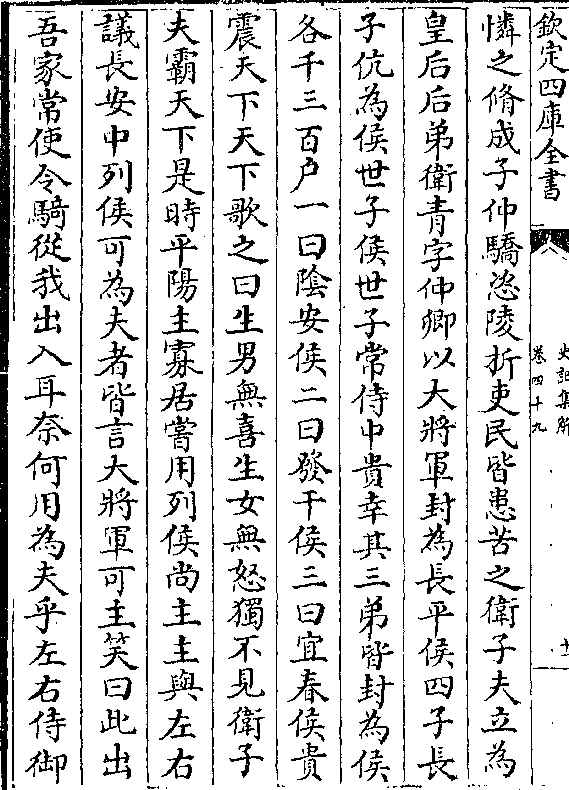 欽定四庫全書
史記集解
卷四十九
十一
憐之脩成子仲驕恣陵折吏民皆患苦之衛子夫立為
皇后后弟衛青字仲卿以大將軍封為長平侯四子長
子伉為侯世子侯世子常侍中貴幸其三弟皆封為侯
各千三百户一曰陰安侯二曰發干侯三曰宜春侯貴
震天下天下歌之曰生男無喜生女無怒獨不見衛子
夫霸天下是時平陽主寡居當用列侯尚主主與左右
議長安中列侯可為夫者皆言大將軍可主笑曰此出
吾家常使令騎從我出入耳奈何用為夫乎左右侍御